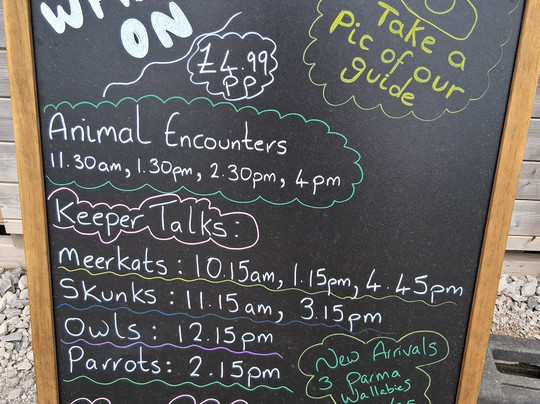 ON
£4.99
PP
Take a
Pic of our
guide
Animal Encounters
11.30am, 1.30pm, 2.30pm, 4pm
Keeper Talks:
Meerkats: 10.15am, 1.15pm, 4.45pm
Skunks: 11.15am, 3.15pm
Owls: 12.15pm
Parrots: 2.15pm
New Arrivals
3 Parma
Wallabies